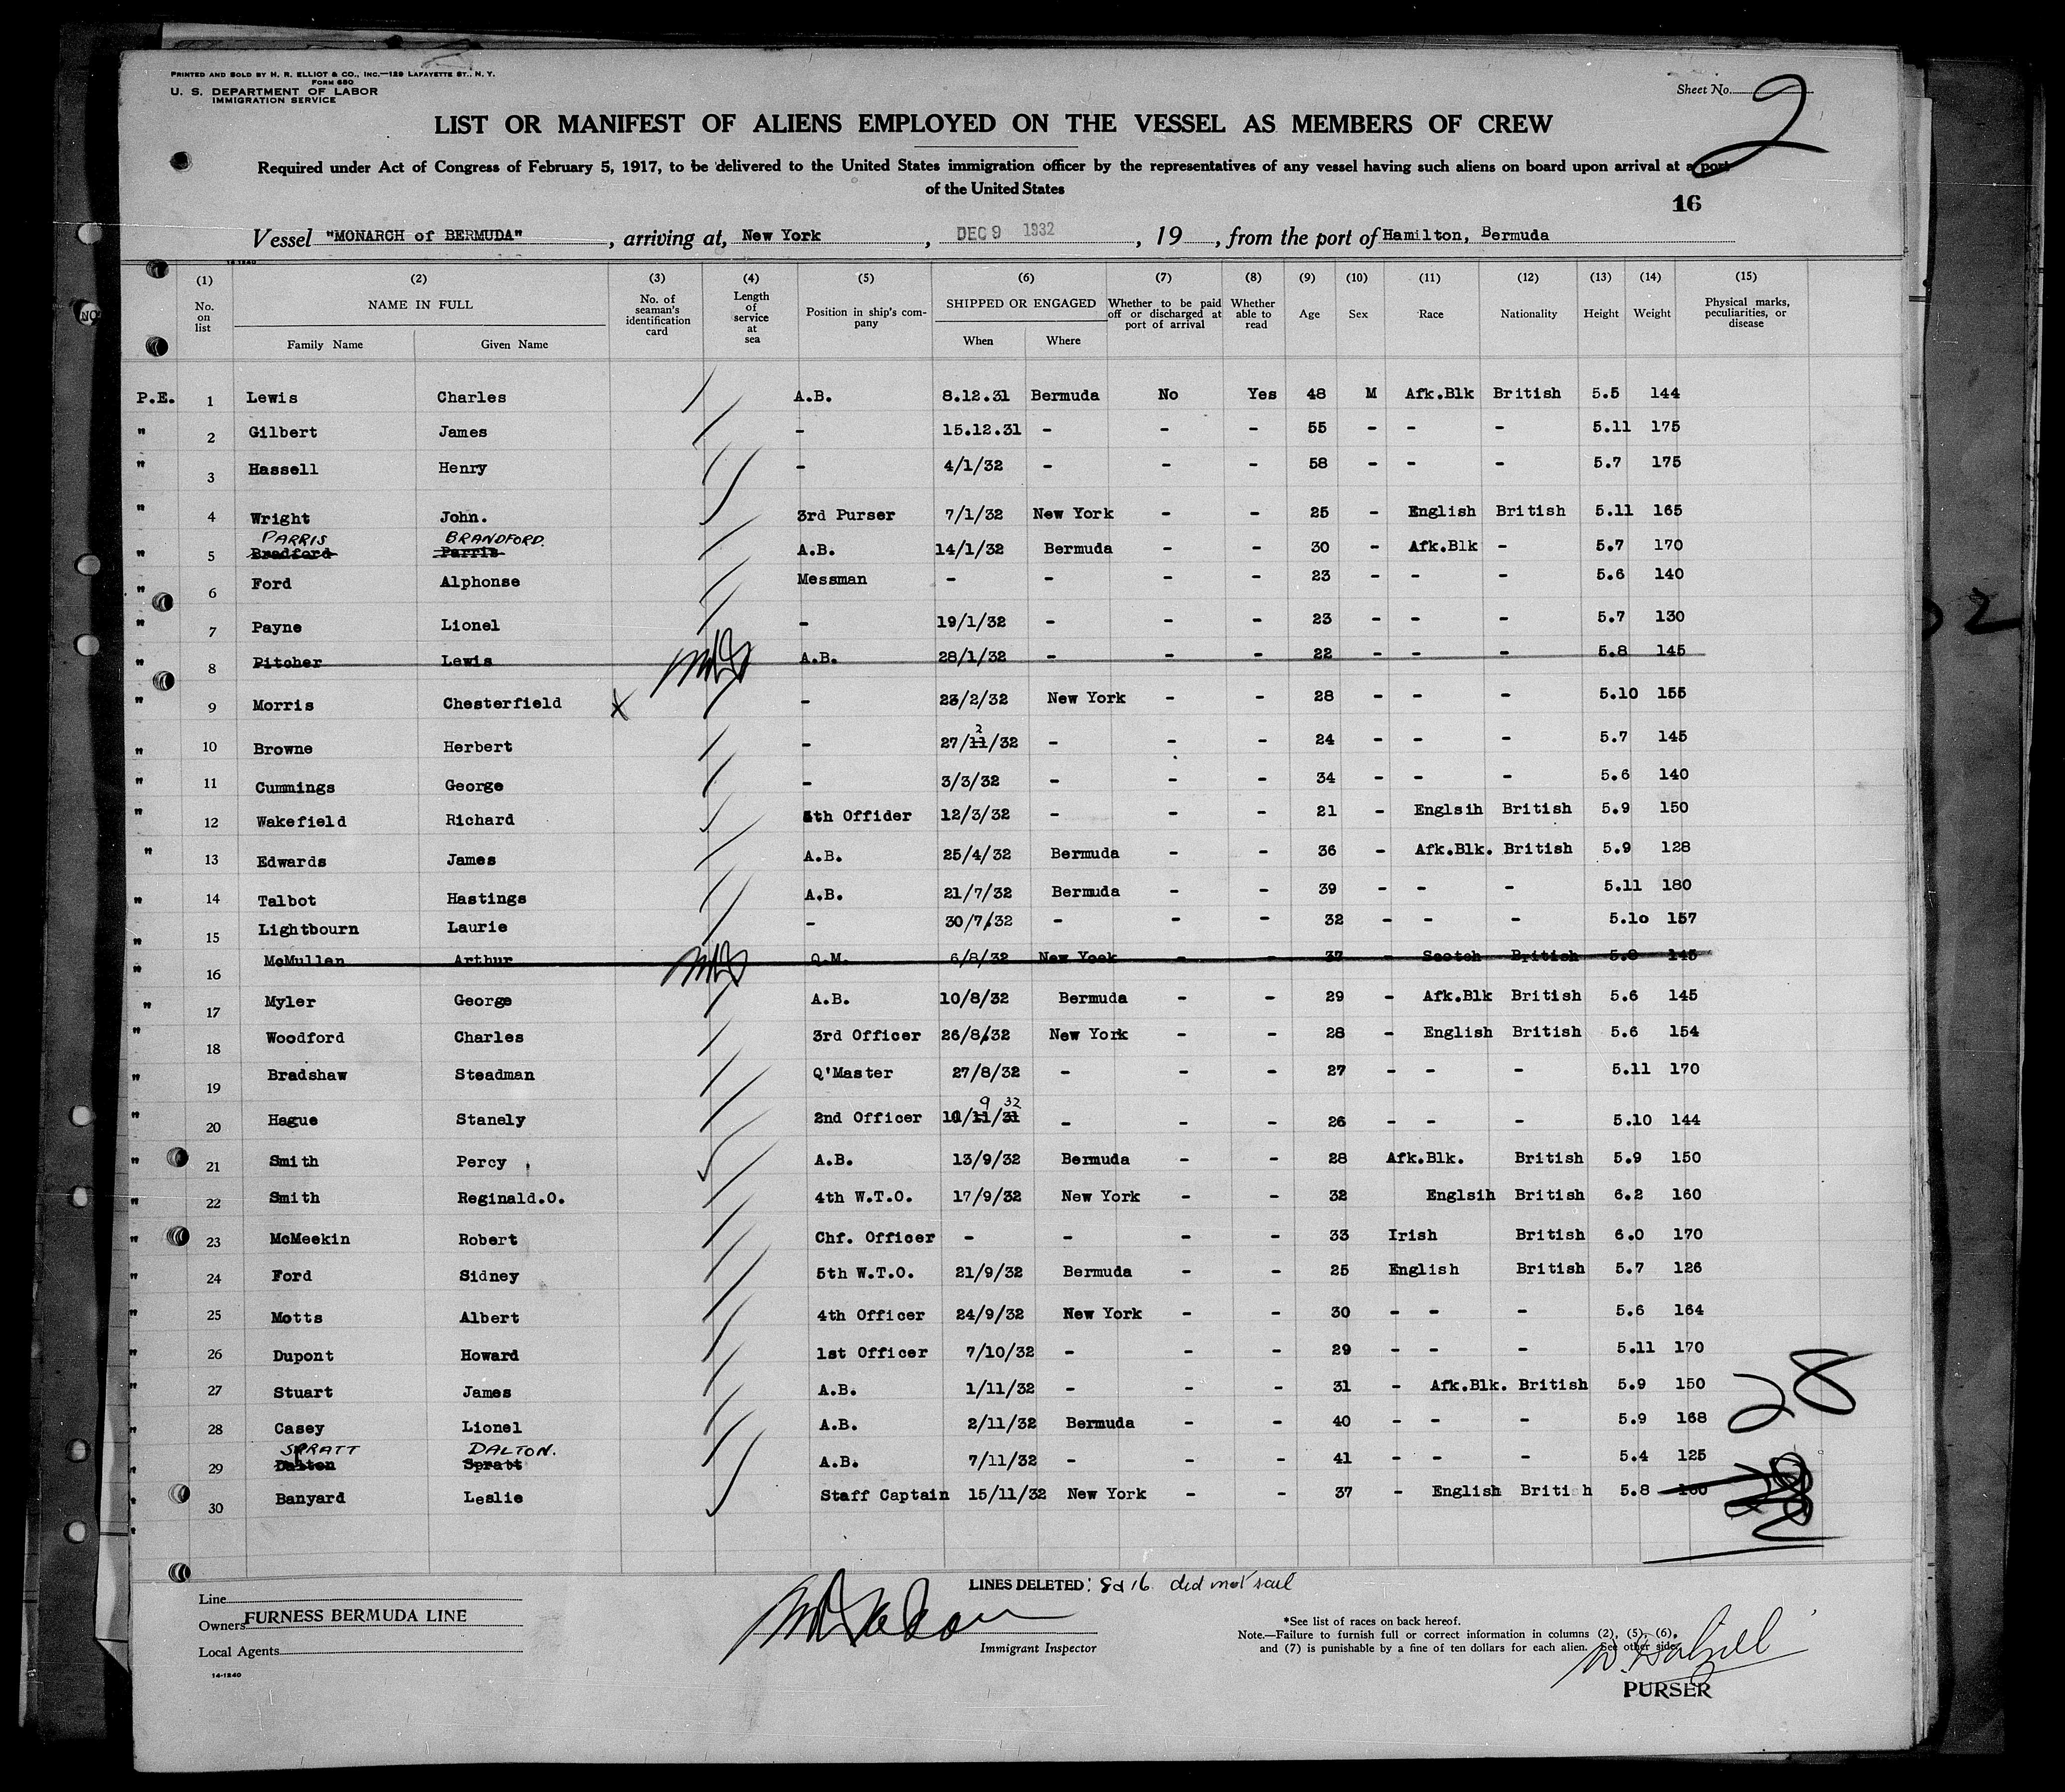 PRINTED AND SOLD BY H. R. ELLIOT & CO., INC.—129 LAFAYETTE ST., N. Y.
FORM 680
U. S. DEPARTMENT OF LABOR
IMMIGRATION SERVICE
Sheet No. 2
LIST OR MANIFEST OF ALIENS EMPLOYED ON THE VESSEL AS MEMBERS OF CREW
Required under Act of Congress of February 5, 1917, to be delivered to the United States immigration officer by the representatives of any vessel having such aliens on board upon arrival at a port
of the United States
16
Vessel "MONARCH of BERMUDA", arriving at, New York, DEC 9 1932, 19, from the port of Hamilton, Bermuda
14-1240
(1) (2) (3) (4) (5) (6) (7) (8) (9) (10) (11) (12) (13) (14) (15)
No. on list NAME IN FULL Family Name Given Name No. of seaman's identification card Length of service at sea Position in ship's company SHIPPED OR ENGAGED When Where Whether to be paid off or discharged at port of arrival Whether able to read Age Sex Race Nationality Height Weight Physical marks, peculiarities, or disease
P.E. 1 Lewis Charles A.B. 8.12.31 Bermuda No Yes 48 M Afk.Blk British 5.5 144
" 2 Gilbert James - 15.12.31 - - - 55 - - - 5.11 175
" 3 Hassell Henry - 4/1/32 - - - 58 - - - 5.7 175
" 4 Wright John. 3rd Purser 7/1/32 New York - - 25 - English British 5.11 165
PARRIS BRANDFORD.
" 5 Bradford Parris A.B. 14/1/32 Bermuda - - 30 - Afk.Blk - 5.7 170
" 6 Ford Alphonse Messman - - - - 23 - - - 5.6 140
" 7 Payne Lionel - 19/1/32 - - - 23 - - - 5.7 130
" 8 Pitcher Lewis A.B. 28/1/32 - - - 22 - - - 5.8 145
" 9 Morris Chesterfield X - 23/2/32 New York - - 28 - - - 5.10 155
2
" 10 Browne Herbert - 27/11/32 - - - 24 - - - 5.7 145
" 11 Cummings George - 3/3/32 - - - 34 - - - 5.6 140
" 12 Wakefield Richard th Offider 12/3/32 - - - 21 - Englsih British 5.9 150
" 13 Edwards James A.B. 25/4/32 Bermuda - - 36 - Afk.Blk. British 5.9 128
" 14 Talbot Hastings A.B. 21/7/32 Bermuda - - 39 - - - 5.11 180
" 15 Lightbourn Laurie - 30/7/32 - - - 32 - - - 5.10 157
" 16 McMullen Arthur Q.M. 6/8/32 New York - - 37 - Scotch British 5.8 145
" 17 Myler George A.B. 10/8/32 Bermuda - - 29 - Afk.Blk British 5.6 145
" 18 Woodford Charles 3rd Officer 26/8/32 New York - - 28 - English British 5.6 154
" 19 Bradshaw Steadman Q'Master 27/8/32 - - - 27 - - - 5.11 170
9 32
" 20 Hague Stanely 2nd Officer 10/11/31 - - - 26 - - - 5.10 144
" 21 Smith Percy A.B. 13/9/32 Bermuda - - 28 Afk.Blk. British 5.9 150
" 22 Smith Reginald.O. 4th W.T.O. 17/9/32 New York - - 32 Englsih British 6.2 160
" 23 McMeekin Robert Chf. Officer - - - - 33 Irish British 6.0 170
" 24 Ford Sidney 5th W.T.O. 21/9/32 Bermuda - - 25 English British 5.7 126
" 25 Motts Albert 4th Officer 24/9/32 New York - - 30 - - - 5.6 164
" 26 Dupont Howard 1st Officer 7/10/32 - - - 29 - - - 5.11 170
" 27 Stuart James A.B. 1/11/32 - - - 31 - Afk.Blk. British 5.9 150
28
" 28 Casey Lionel A.B. 2/11/32 Bermuda - - 40 - - - 5.9 168
SPRATT DALTON.
" 29 Dalton Spratt A.B. 7/11/32 - - - 41 - - - 5.4 125
" 30 Banyard Leslie Staff Captain 15/11/32 New York - - 37 - English Briti h 5.8 160
LINES DELETED: 8 d 16. did not sail
Line
Owners FURNESS BERMUDA LINE
Local Agents
Immigrant Inspector
*See list of races on back hereof.
Note.—Failure to furnish full or correct information in columns (2), (5), (6),
and (7) is punishable by a fine of ten dollars for each alien. See other side.
PURSER
14-1240